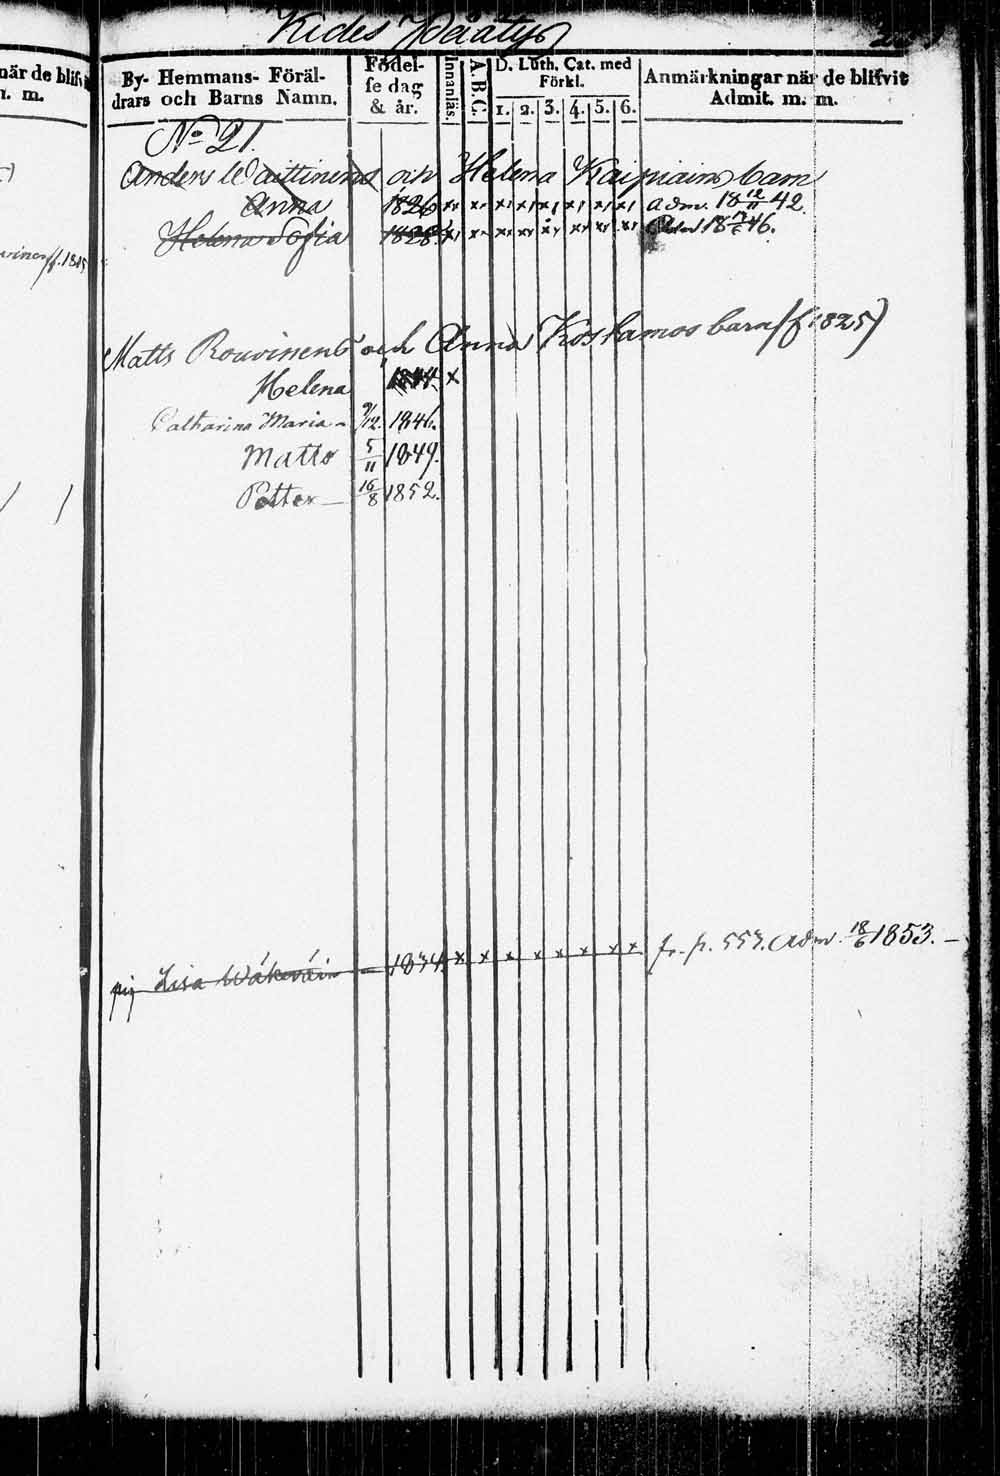 Kides Pöätys
när de blifvit
m. m.
By- Hemmans- Föräl-
drars och Barns Namn.
Födel-
se dag
& år.
Innanläs.
A.B.C.
D. Luth. Cat. med
Förkl.
1. 2. 3. 4. 5. 6.
Anmärkningar när de blifvit
Admit. m. m.
No 21.
Anders Waittinens och Helena Kaipiains barn
Anna 1826 Adm. 18 12/11 42.
Helena Sofia 1828 18 46.
f. 1815
Matts Rouvinens och Anna Koskamos barn (f 1825)
Helena 1844 x
Catharina Maria - 9/12. 1846.
Matts 5/11 1849.
Petter - 16/8 1852.
pig Lisa Wäkeväin - 1834 x x x x x x x x fr. p. 553. Adm. 18/6 1853. -